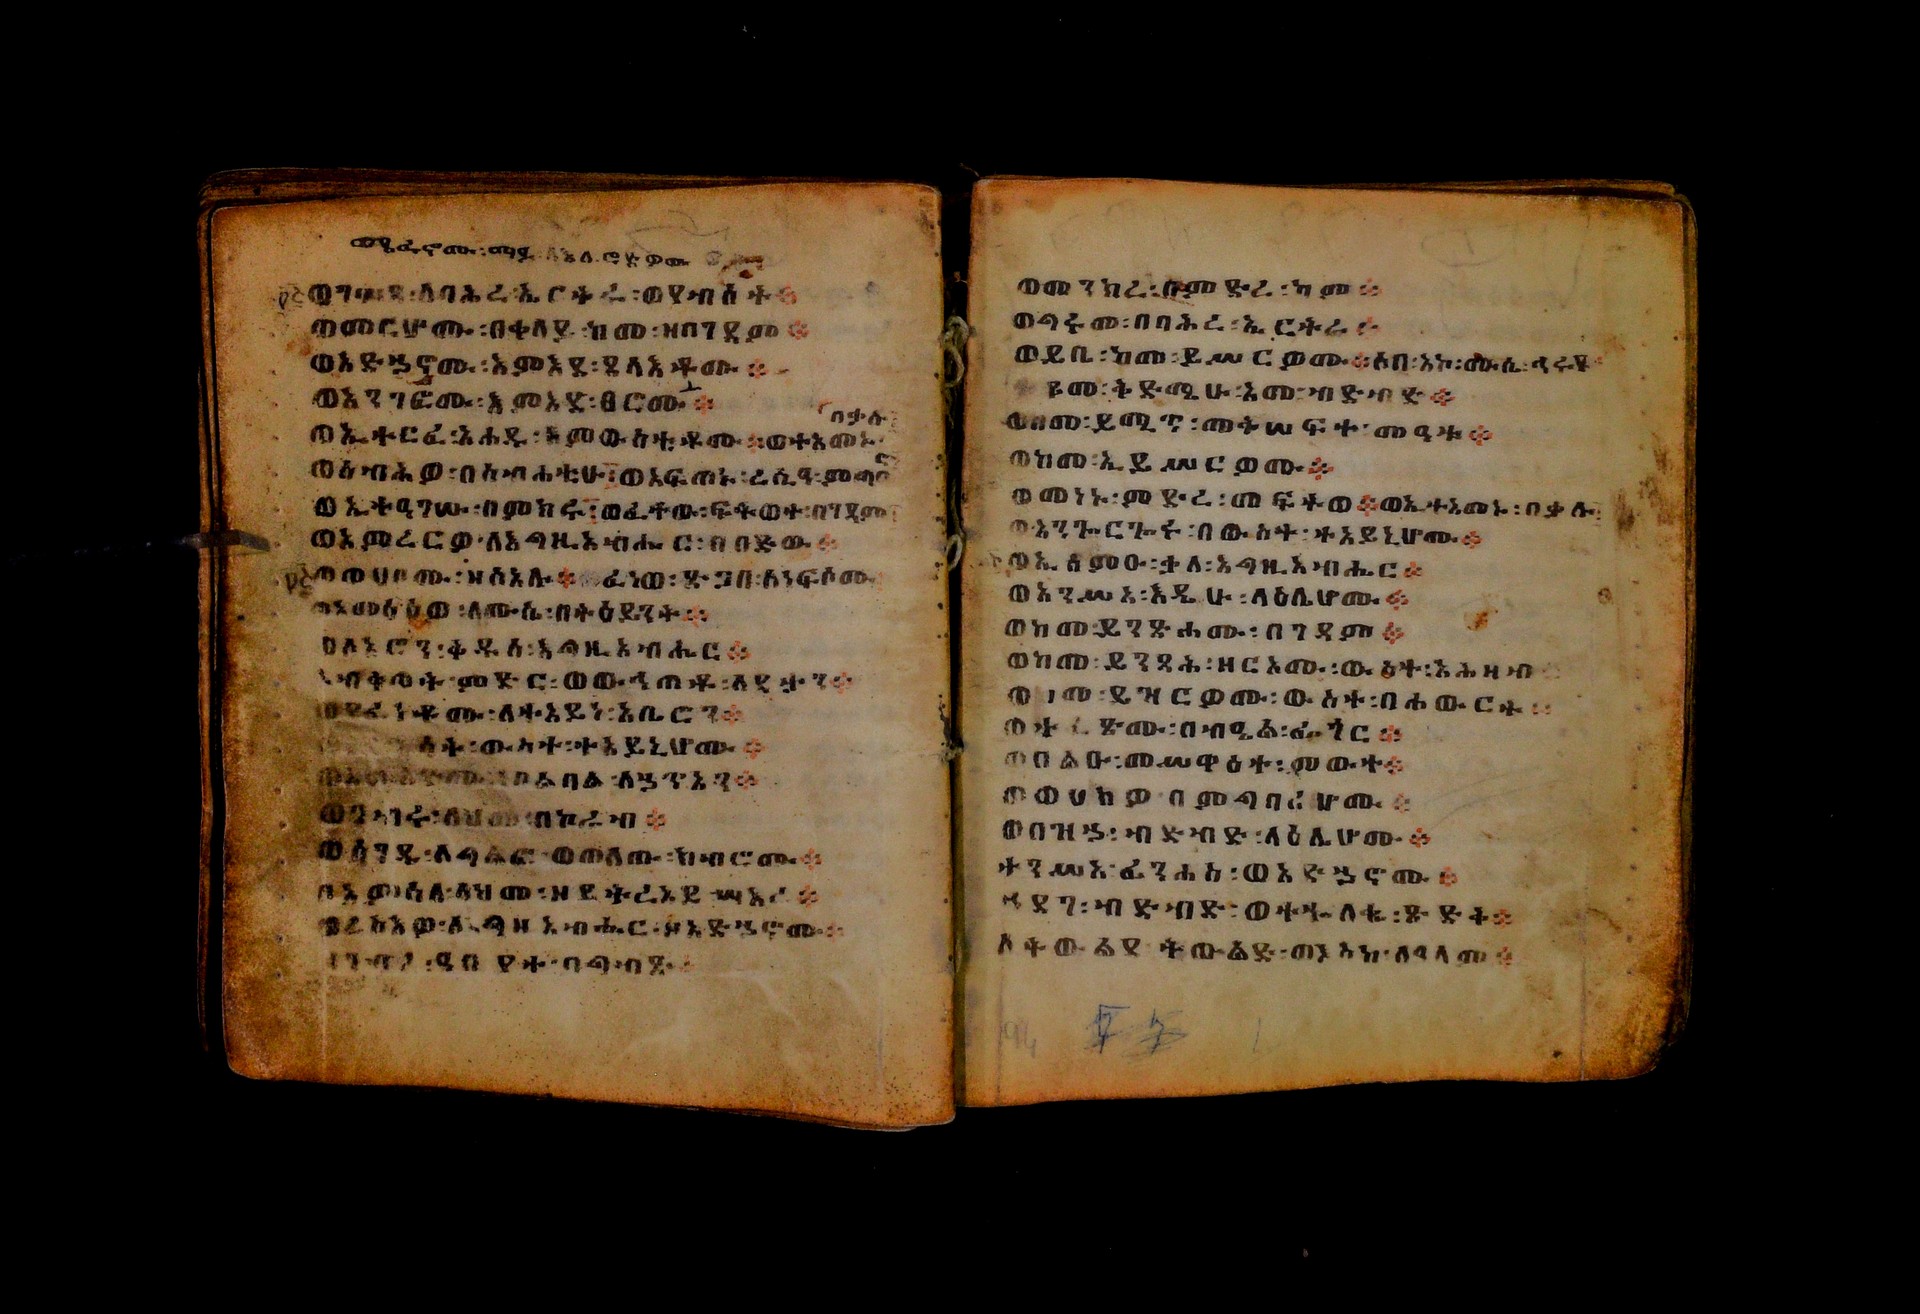 ወገሠጻ ለባሕረ ኤርትራ ወየብሰት።
ወመርሆሙ በቀላይ ከመ ዘበገዳም።
ወአድኃኖሙ እምእደ ጸላእቶሙ።
ወአንገፎሙ እምእደ ፀሮሙ።
በቃሉ
ወኢተርፈ አሐዱ እምውስቴቶሙ ወተአመኑ
ወሰብሕዎ በስብሐቲሁ ወአፍጠኑ ረሲዓ ምግባሮ
ወኢተዓገሡ በምክሩ ወፈተዉ ፍትወተ በገዳም
ወአምረርዎ ለእግዚአብሔር በበድው።
ወወሀቦሙ ዘሰአሉ። ፈነወ ጽጋበ ለነፍሶሙ
ወአምዕዕዎ ለሙሴ በተዕይንት።
ወለአሮን ቅዱሰ እግዚአብሔር።
አብቀወት ምድር ወውኅጠቶ ለዳታን።
ወደፈነቶሙ ለተአይነ አቤሮን።
እሳት ውስተ ተአይኒሆሙ።
ነበልባል ለኃጥአን።
ወገብሩ ላህመ በኮሬብ።
ወሰገዱ ለግልፎ ወወለጡ ክብሮሙ።
በአምሳለ ላህም ዘይትረአይ ሣእረ።
ወረስእዎ ለእግዚአብሔር ዘአድኃኖሙ።
ዓቢያተ በግብጽ።
ወመንክረ በምድረ ካም።
ወግሩመ በባሕረ ኤርትራ።
ወይቤ ከመ ይሠርዎሙ። ሶበ አኮ ሙሴ ኅሩዩ
ዘቆመ ቅድሜሁ አመ ብድብድ።
ከመ ይሚጥ መቅሠፍተ መዓቱ።
ወከመ ኢይሠርዎሙ።
ወመነኑ ምድረ መፍትወ። ወኢተአመኑ በቃሉ
ወአንጐርጐሩ በውስተ ተአይኒሆሙ።
ወኢሰምዑ ቃለ እግዚአብሔር።
ወአንሥአ እዴሁ ላዕሌሆሙ።
ወከመ ይንጽሖሙ በገዳም።
ወከመ ይንጻሕ ዘርኦሙ ውስተ አሕዛብ
ወከመ ይዝርዎሙ ውስተ በሐውርት።
ወተፈጽሙ በብዔል ፌጎር።
ወበልዑ መሠዋዕተ ምውት።
ወወሀክዎ በምግባሪሆሙ።
ወበዝኃ ብድብድ ላዕሌሆሙ።
ተንሥአ ፊንሐስ ወአድኃኖሙ።
ኀደገ ብድብድ ወተኈለቈ ጽድቅ።
ለትውልደ ትውልድ ወእስከ ለዓለም።